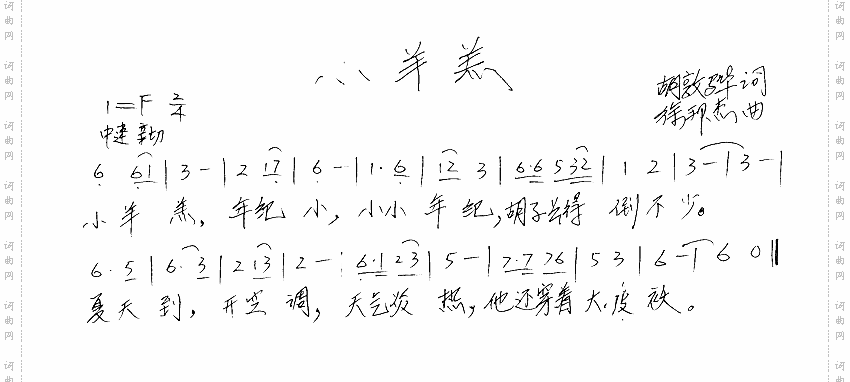 小羊羔
1=F 2/4
中速 亲切
胡敦骅词
徐邦杰曲
6 61 | 3 - | 2 17 | 6 - | 1·6 | 12 3 | 6·6 532 | 1 2 | 3 - | 3 - |
小羊羔，年纪小，小小年纪，胡子长得倒不少。
6·5 | 6·3 | 213 | 2 - | 6·123 | 5 - | 7·7 76 | 5 3 | 6 - | 6 0 ‖
夏天到，开空调，天气炎热，他还穿着大皮袄。
词曲网 词曲网 词曲网 词曲网
词曲网 词曲网 词曲网 词曲网